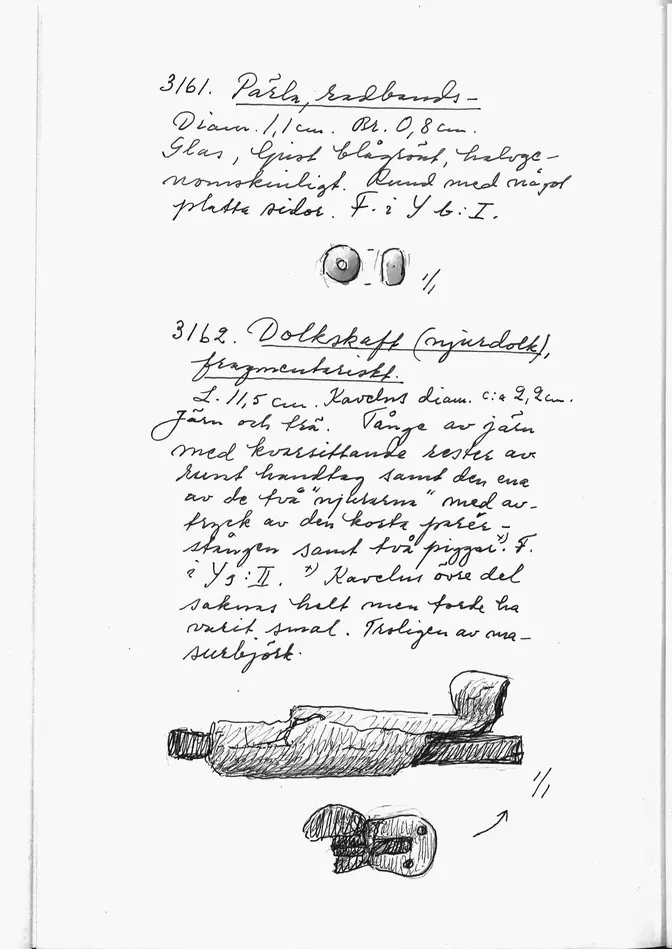 3161. Pärla, radbands-
Diam. 1,1 cm. Br. 0,8 cm.
Glas, ljust blågrönt, halvge-
nomskinligt. Rund med något
platta sidor. F. i Y b:I.
1/1
3162. Dolkskaft (njurdolk),
fragmentariskt.
L. 11,5 cm. Kavelns diam. c:a 2,2 cm.
Järn och trä. Tånge av järn
med kvarsittande rester av
runt handtag samt den ena
av de två "njurarna" med av-
tryck av den korta parér-
stången samt två piggar. x) F.
i Y 3:II. x) Kavelns övre del
saknas helt men torde ha
varit smal. Troligen av ma-
surbjörk.
1/1